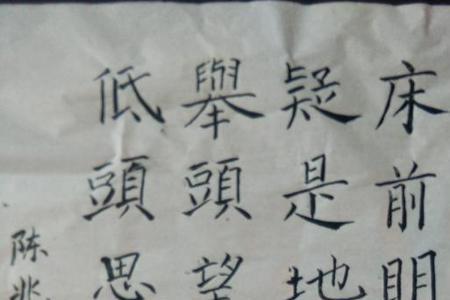 床前明
疑是地
舉頭望
低頭思
陈兆